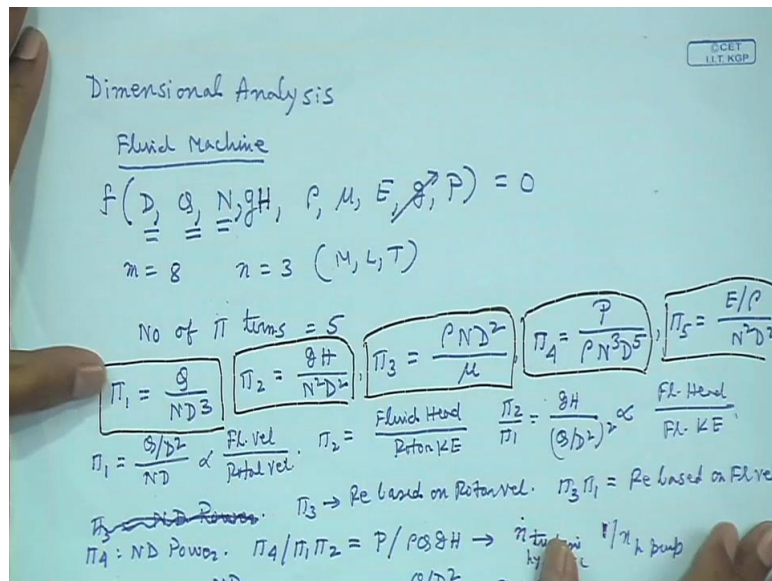 ©CET
I.I.T. KGP
Dimensional Analysis
Fluid Machine
f(D, Q, N, gH, ρ, μ, E, g, P) = 0
m = 8 n = 3 (M, L, T)
No of Π terms = 5
Π1 = Q/ND³ , Π2 = gH/N²D² , Π3 = ρND²/μ , Π4 = P/ρN³D⁵ , Π5 = E/ρ/N²D²
Π1 = Q/D²/ND ∝ Fl. vel/Rotor vel. Π2 = Fluid Head/Rotor KE Π2/Π1 = gH/(Q/D²)² ∝ Fl. Head/Fl. KE.
Π3 → Re based on Rotor vel. Π3Π1 = Re based on Fl vel
Π4 : ND Power. Π4/Π1Π2 = P/ρQgH → 1/ηh pump
Q/D²